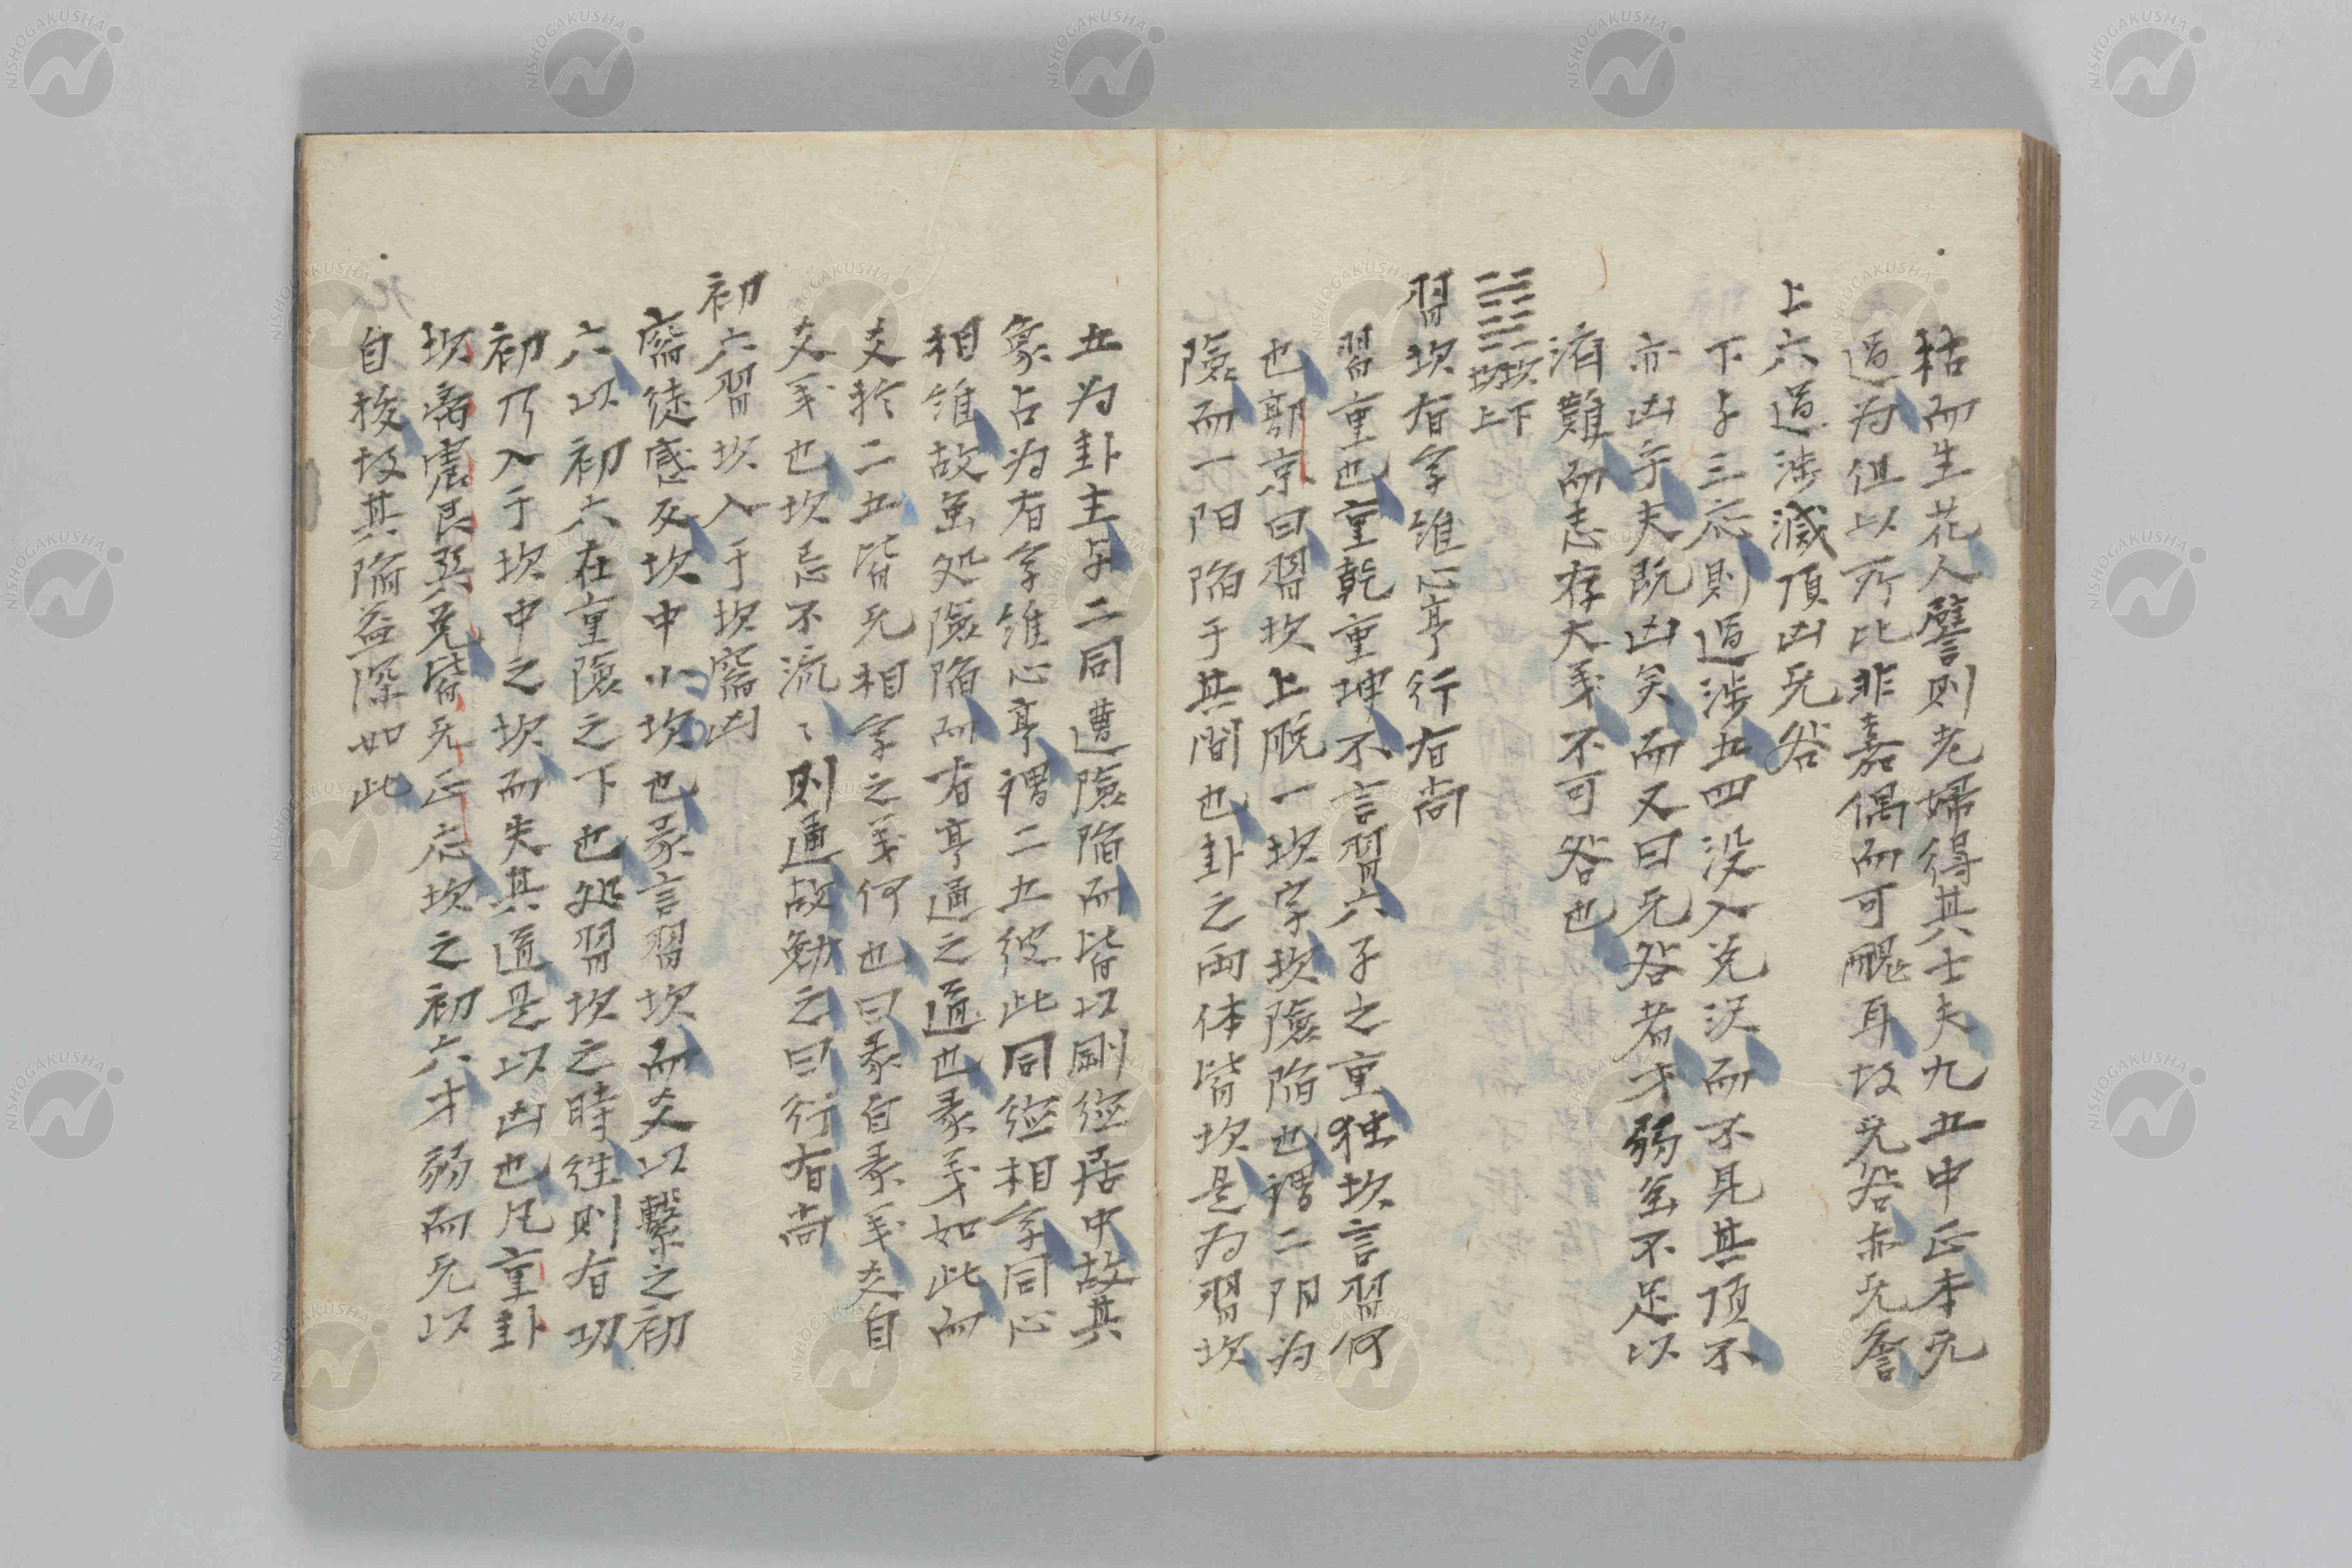 枯而生花人譬則老婦得其士夫九五中正本无
過为但以所比非嘉偶而可醜耳故无咎亦无誉
上六過涉滅頂凶无咎
下与三应則過涉五四没入兑沢而不見其頂不
亦凶乎夫既凶矣而又曰无咎者才弱虽不足以
済難而志存大义不可咎也
䷜坎下坎上
習坎有孚維心亨行有尚
習重也重乾重坤不言習六子之重独坎言習何
也郭京曰習坎上脱一坎字坎險陷也謂二阴为
險而一阳陷于其間也卦之両体皆坎是为習坎
五为卦主与二同遭險陷而皆以剛德居中故其
象占为有孚維心亨謂二五彼此同德相孚同心
相維故虽処險陷而有亨通之道也彖义如此而
爻於二五皆无相孚之义何也曰彖自彖义爻自
爻义也坎忌不流〻則通故勉之曰行有尚
初六習坎入于坎窞凶
窞徒感反坎中小坎也彖言習坎而爻以繫之初
六以初六在重險之下也処習坎之時往則有功
初乃入于坎中之坎而失其道是以凶也凡重卦
坎离震艮巽兑皆无正应坎之初六才弱而无以
自拔故其陷益深如此
NISHOGAKUSHA